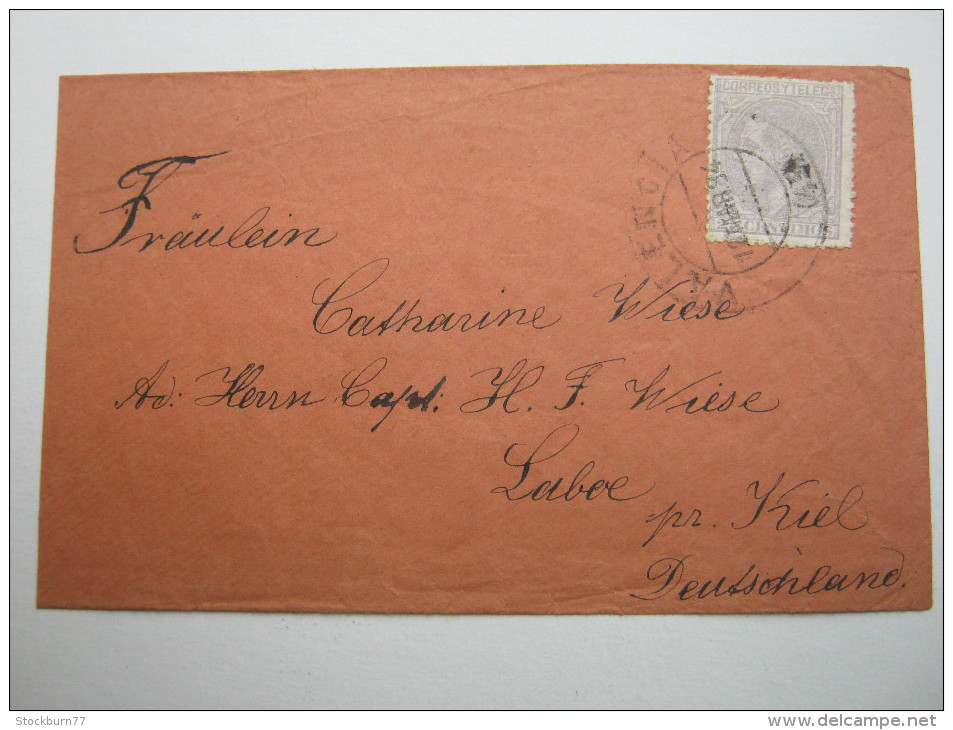 CORREOS Y TELEGS
VALENCIA
MAR 84
Fräulein
Catharine Wiese
Ad: Herrn Capt: H. F. Wiese
Laboe
pr. Kiel
Deutschland.
Stockburn77
www.delcampe.net